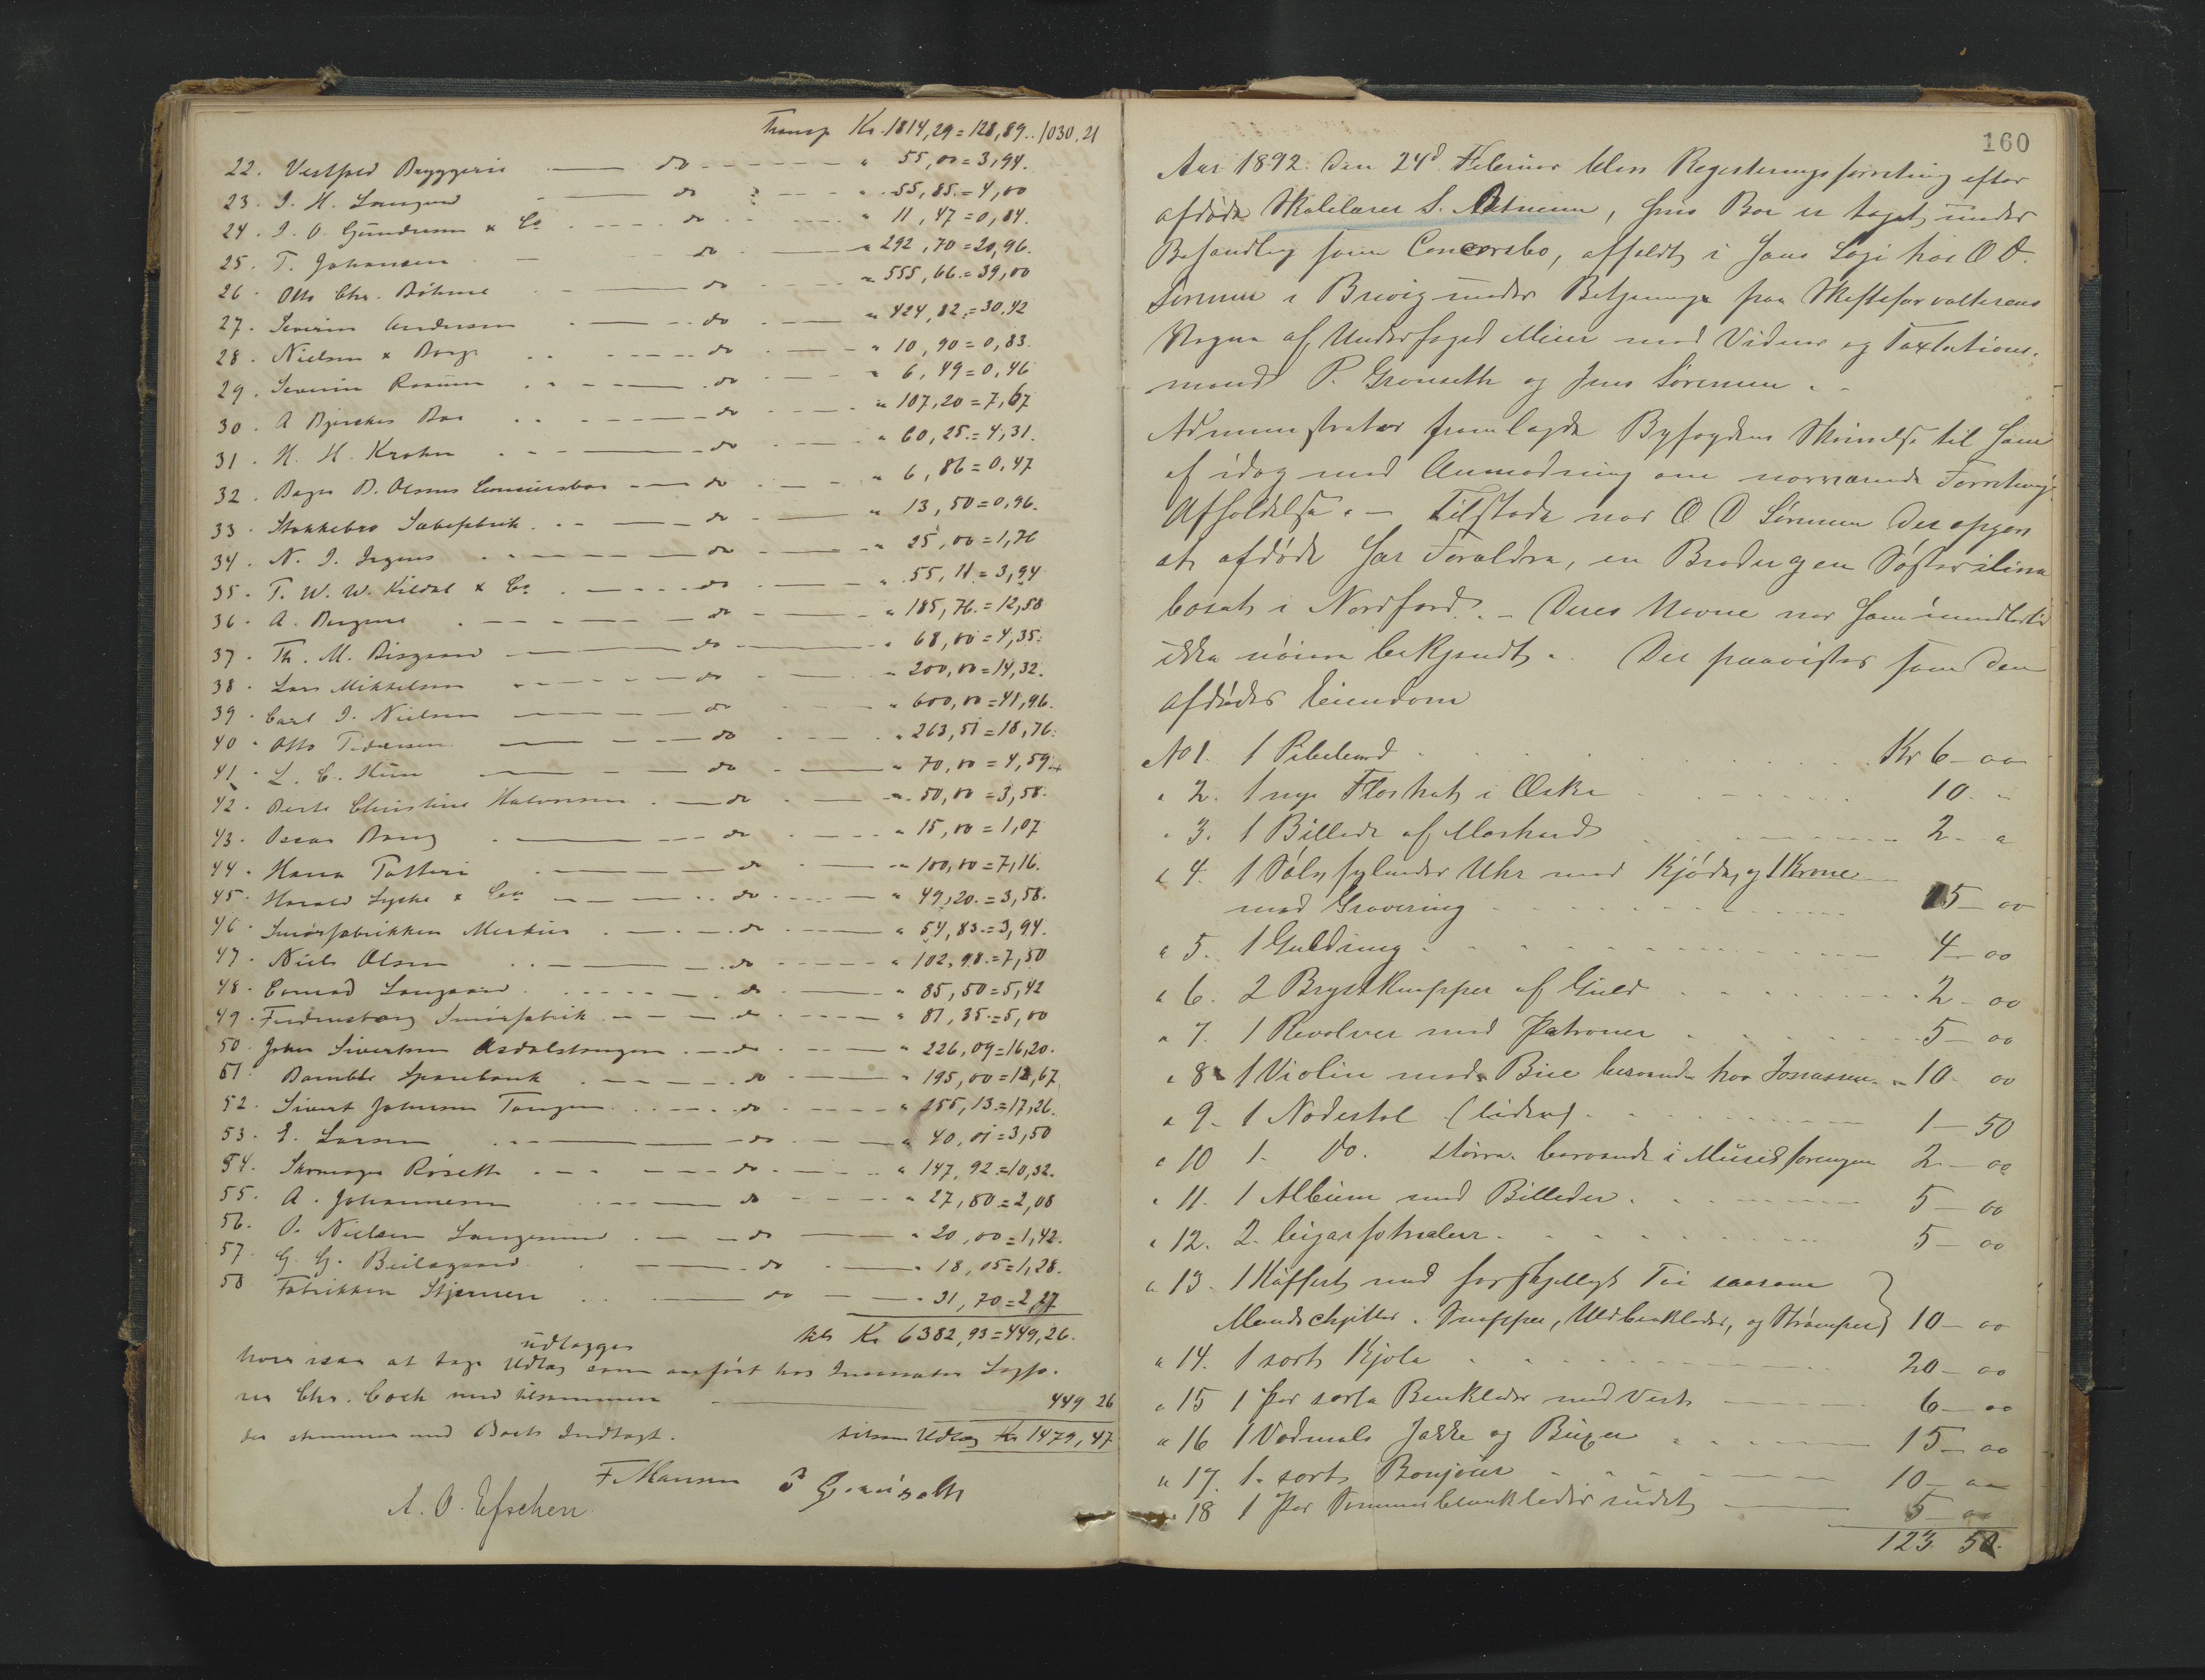 Transp Kr. 1814,29 = 128,89.. 1030,21
22. Vestfold Bryggeri do " 55,00 = 3,94.
23. I. H. Langaard do " 55,85. = 4,00
24. I. O. Gundersen & Co do " 11,47 = 0,84.
25. T. Johansen do " 292,70 = 20,96.
26. Otto Chr. Böhme do " 555,66. = 39,00
27. Severin Andersen do " 424,82. = 30,42
28. Nielsen & Borge do " 10,90 = 0,83.
29. Severin Rasum do " 6,49 = 0,46
30. A Bjerckes Bo do " 107,20 = 7,67
31. H. H. Krohn do " 60,25. = 4,31.
32. Bager D. Olsens Concursbo do " 6,86 = 0,47
33. Stokkebro Sæbefabrik do " 13,50 = 0,96.
34. N. I. Irgens do " 25,00 = 1,76
35. T. W. W. Kildal & Co do " 55,11 = 3,94
36. A. Bergene do " 185,76. = 12,58
37. Th. M. Bisgaard do " 68,00 = 4,35.
38. Lars Mikkelsen do " 200,00 = 14,32.
39. Carl I. Nielsen do " 600,00 = 41,96.
40. Otto Pedersen do " 263,51 = 18,76.
41. L. C. do " 70,00 = 4,59
42. Berte Christine Halvorsen do " 50,00 = 3,58.
43. Oscar Borg do " 15,00 = 1,07
44. Hana do " 100,00 = 7,16.
45. Harald Lyche & Co do " 49,20. = 3,58.
46. Smörfabrikken do " 54,83. = 3,94.
47. Niels Olsen do " 102,98. = 7,50
48. Conrad Langaard do " 85,50 = 5,42
49. Fredensborg Smörfabrik do " 81,35. = 5,00
50. Johan Sivertsen Asdalstangen do " 226,09 = 16,20.
51. Bamble Sparebank do " 195,00 = 12,67
52. Sivert Johnsen Tangen do " 255,13 = 17,26.
53. E. Larsen do " 40,01 = 3,50
54. Skomager Röseth do " 147,92 = 10,32.
55. A. Johannesen do " 27,80 = 2,08
56. O. Nielsen Langesund do " 20,00 = 1,42.
57. G. G. do " 18,05 = 1,28.
58 Fabrikken Stjernen do " 31,70 = 2,27
Kr 6382,93 = 449,26.
udlægges
at tage Udlæg som anfört hos Sagfö-
rer Chr. Cock med tilsammen 449 26
der stemmer med Boets Indtægt. tilsam Udlæg Kr 1479,47
F. Hansen P Grönseth
A. O. Efschen
160
Aar 1892 den 24d Februar blev Registreringsforretning efter
afdöde Skolelærer S. , hvis Bo er taget under
Behandling som Concursbo, afholdt i hans Logi hos O O.
Sörensen i Brevig under Betjening paa Skifteforvalterens
Vegne af Underfoged Meier med Vidner og Taxtations-
mænd P. Grönseth og Jens Sörensen.
Administrator fremlagde Byfogdens Skrivelse til ham
af idag med Anmodning om nærværende Forretnings
Afholdelse. – Tilstede var O O Sörensen der opgav
at afdöde har Forældre, en Broder og en Söster ilive
bosat i Nordfjord. – Deres Navne var ham imidlertid
ikke nöiere bekjendt. Der paavistes som den
afdödes Eiendom
No 1. 1 Pibebord Kr 6 – 00
" 2. 1 nye Floshat i Æske 10. "
" 3. 1 Billede af 2 – "
" 4. 1 Sölv sylinder Uhr med Kjæde og 1 Krone
med Gravering 15 – 00
" 5. 1 Guldring 4 – 00
" 6. 2 Brystknapper af Guld 2 – 00
" 7. 1 Revolver med Patroner 5 – 00
" 8 1 Violin med Bue beroende hos Jonassen 10 – 00
" 9. 1 Nodestol (liden) 1 – 50
" 10 1. Do. större beroende i Musikforeningen 2 – 00
" 11. 1 Album med Billeder 5 – 00
" 12. 2. Cigarfotraler 5 – 00
" 13. 1 Koffert med forskjelligt Töi saasom
Mandschjetter. Snipper, Uldbenklæder, og Strömper 10 – 00
" 14. 1 sort Kjole 20 – 00
" 15 1 Par sorte Benklæder med Vest 6 – 00
" 16 1 Vadmels Jakke og Buxer 15 – 00
" 17. 1. sort Bonjour 10 – 00
" 18 1 Par Sommerbenklæder 5 – 00
123 50.